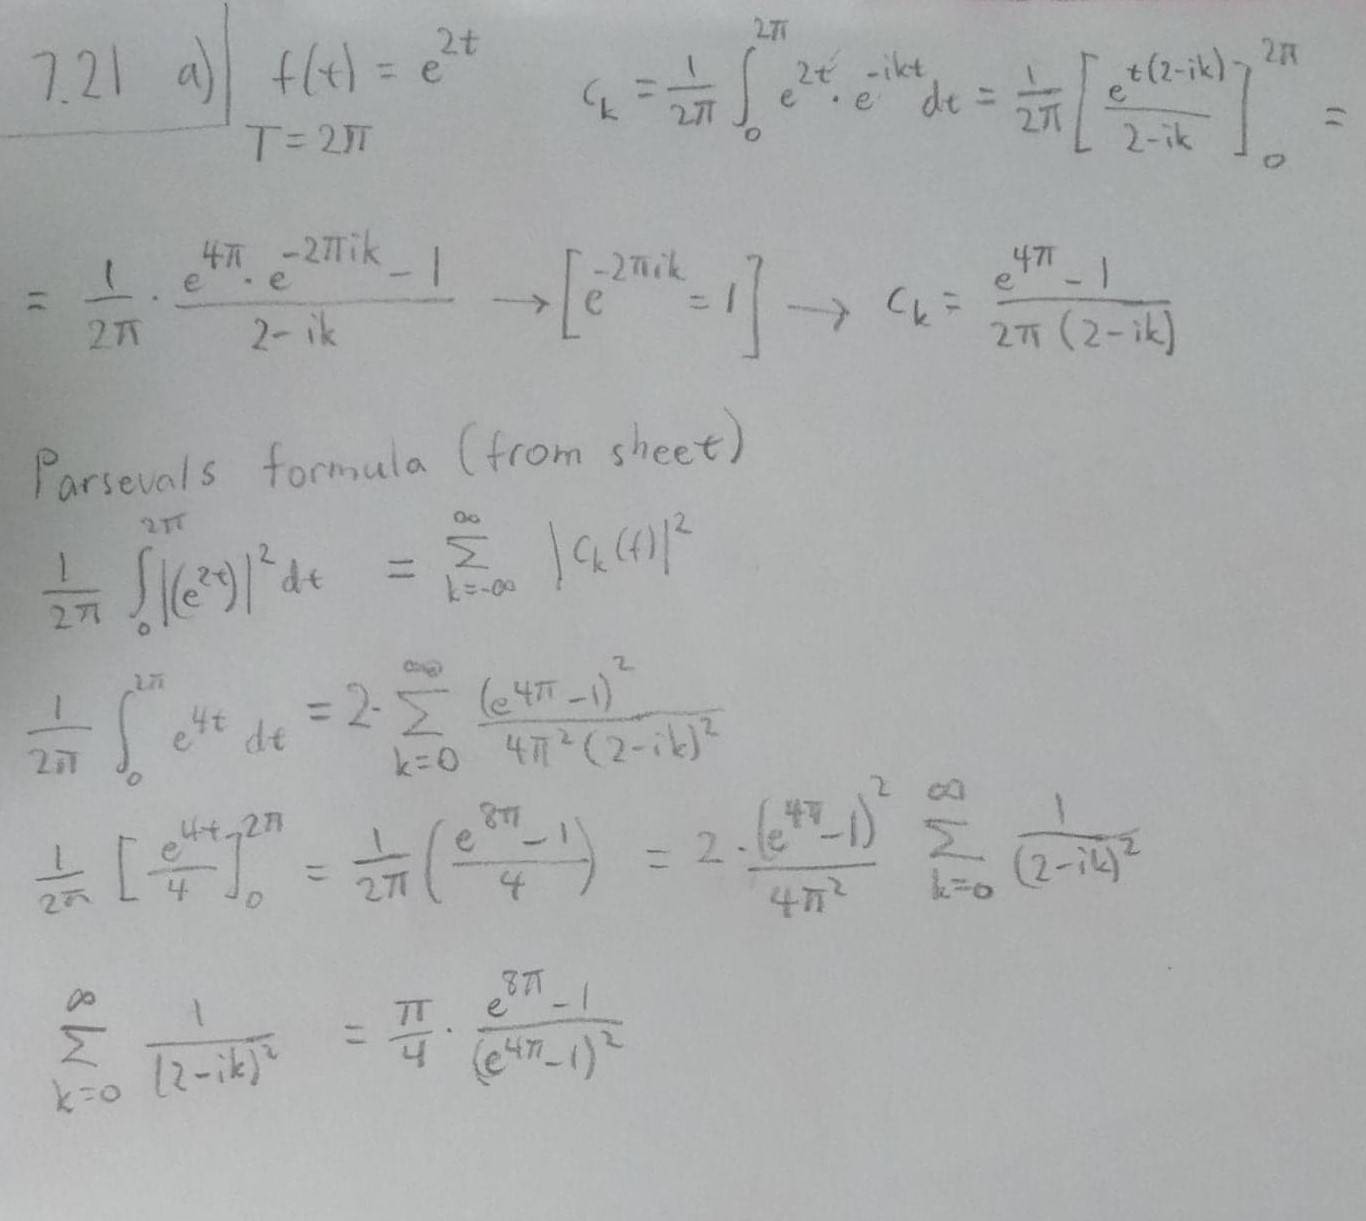 7.21 a) f(t) = e^{2t} c_k = \frac{1}{2π} \int_0^{2π} e^{2t} · e^{-ikt} dt = \frac{1}{2π} [\frac{e^{t(2-ik)}}{2-ik}]_0^{2π} =
T = 2π
= \frac{1}{2π} · \frac{e^{4π} · e^{-2πik} - 1}{2-ik} → [e^{-2πik} = 1] → c_k = \frac{e^{4π} - 1}{2π (2-ik)}
Parsevals formula (from sheet)
\frac{1}{2π} \int_0^{2π} |(e^{2t})|^2 dt = \sum_{k=-∞}^{∞} |c_k(f)|^2
\frac{1}{2π} \int_0^{2π} e^{4t} dt = 2· \sum_{k=0}^{∞} \frac{(e^{4π} - 1)^2}{4π^2 (2-ik)^2}
\frac{1}{2π} [\frac{e^{4t}}{4}]_0^{2π} = \frac{1}{2π} (\frac{e^{8π} - 1}{4}) = 2 · \frac{(e^{4π} - 1)^2}{4π^2} \sum_{k=0}^{∞} \frac{1}{(2-ik)^2}
\sum_{k=0}^{∞} \frac{1}{(2-ik)^2} = \frac{π}{4} · \frac{e^{8π} - 1}{(e^{4π} - 1)^2}